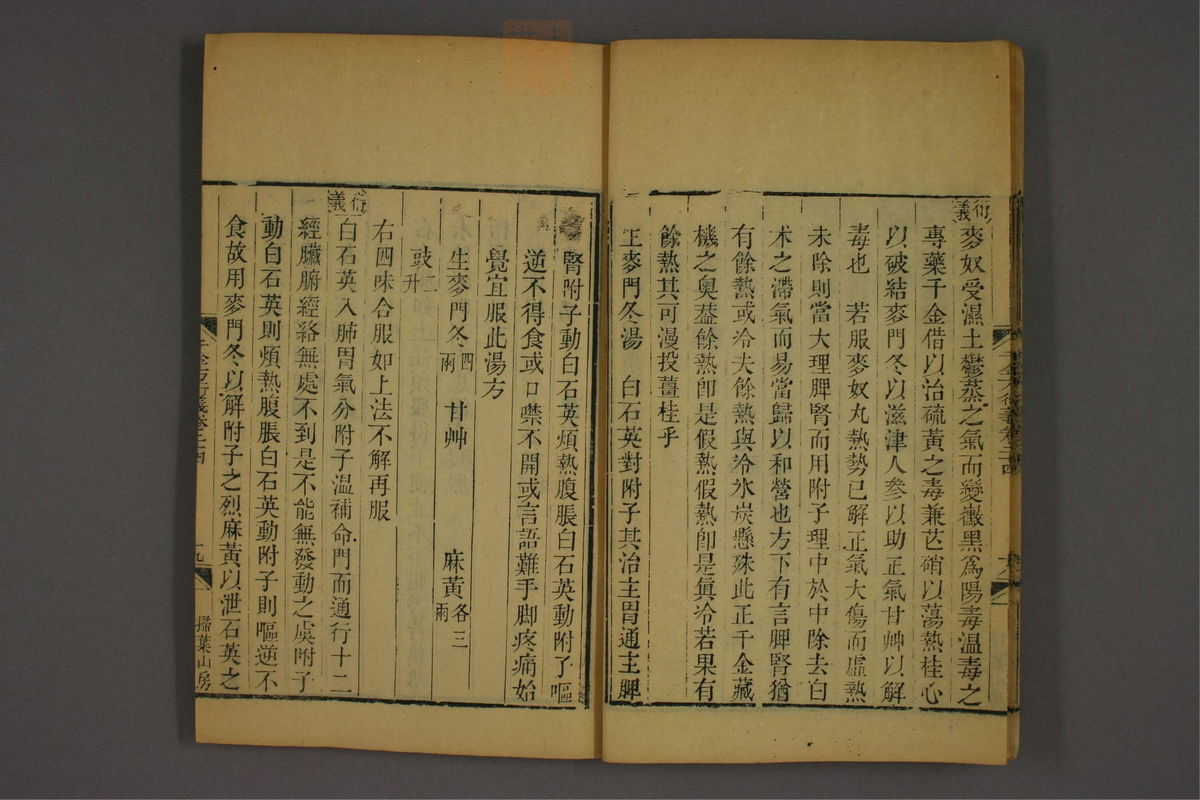 衍義
麥奴受濕土鬱蒸之氣而變黴黑爲陽毒溫毒之
專藥千金借以治硫黃之毒兼芒硝以蕩熱桂心
以破結麥門冬以滋津人參以助正氣甘艸以解
毒也　若服麥奴丸熱勢已解正氣大傷而虛熱
未除則當大理脾腎而用附子理中於中除去白
朮之滯氣而易當歸以和營也方下有言脾腎猶
有餘熱或冷夫餘熱與冷氷炭懸殊此正千金藏
機之奧葢餘熱卽是假熱假熱卽是眞冷若果有
餘熱其可漫投薑桂乎
生麥門冬湯　白石英對附子其治主胃通主脾
腎附子動白石英煩熱腹脹白石英動附子嘔
逆不得食或口噤不開或言語難手脚疼痛始
覺宜服此湯方
生麥門冬四兩　甘艸　麻黃各三兩
豉二升
右四味合服如上法不解再服
衍義
白石英入肺胃氣分附子溫補命門而通行十二
經臟腑經絡無處不到是不能無發動之虞附子
動白石英則煩熱腹脹白石英動附子則嘔逆不
食故用麥門冬以解附子之烈麻黃以泄石英之
千金方衍義卷二十四
掃葉山房